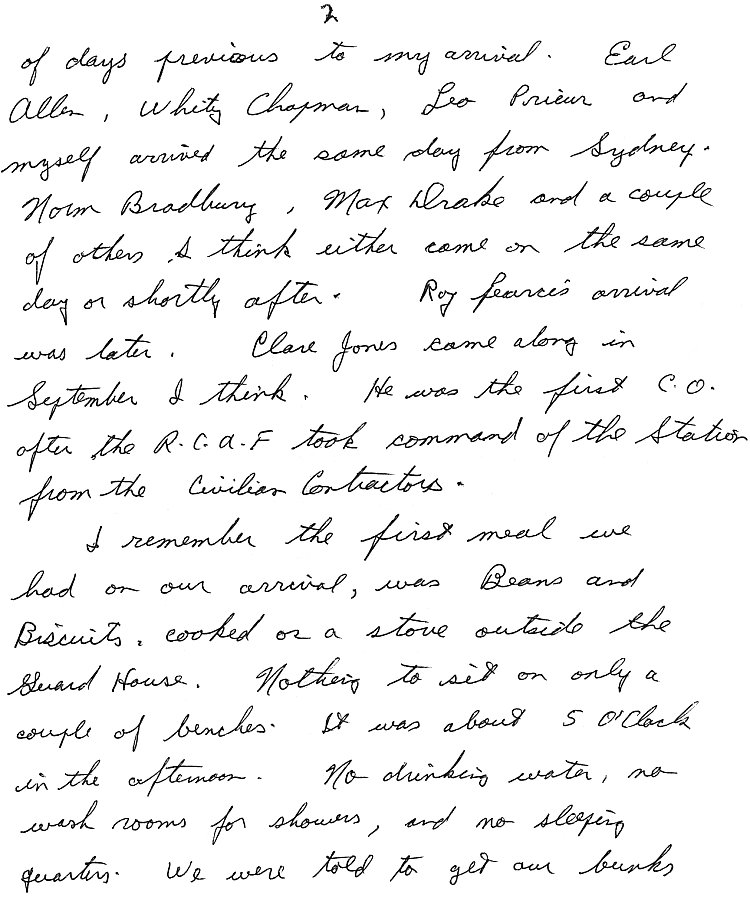 2
of days previous to my arrival. Earl
Allen, Whity Chapman, Leo Prieur and
myself arrived the same day from Sydney.
Norm Bradbury, Max Drake and a couple
of others I think either came on the same
day or shortly after. Roy Pearce's arrival
was later. Clare Jones came along in
September I think. He was the first C.O.
after the R.C.A.F took command of the Station
from the Civilian Contractors.
I remember the first meal we
had on our arrival, was Beans and
Biscuits, cooked on a stove outside the
Guard House. Nothing to sit on only a
couple of benches. It was about 5 O'Clock
in the afternoon. No drinking water, no
wash rooms for showers, and no sleeping
quarters. We were told to get our bunks